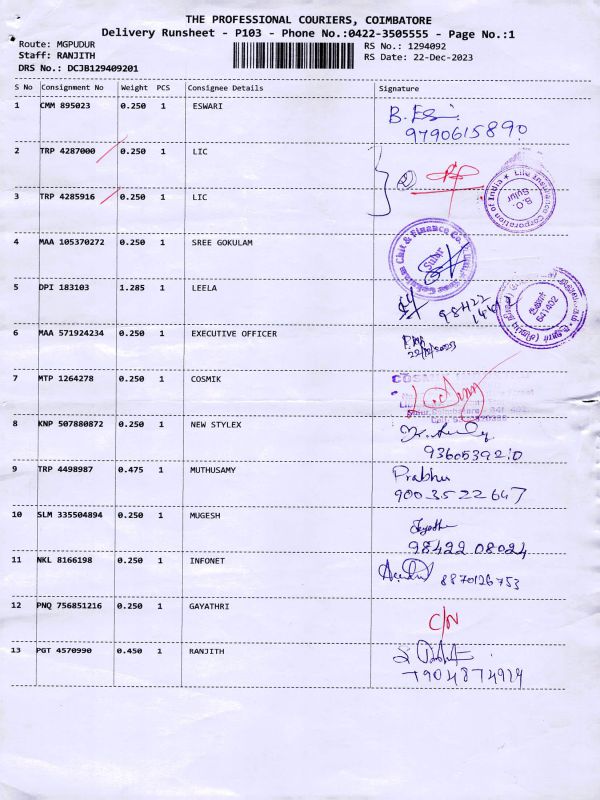 THE PROFESSIONAL COURIERS, COIMBATORE
Delivery Runsheet - P103 - Phone No.:0422-3505555 - Page No.:1
Route: MGPUDUR
Staff: RANJITH
DRS No.: DCJB129409201
RS No.: 1294092
RS Date: 22-Dec-2023
S No Consignment No Weight PCS Consignee Details Signature
1 CMM 895023 0.250 1 ESWARI
9790615890
2 TRP 4287000 0.250 1 LIC
3 TRP 4285916 0.250 1 LIC
Life Insurance Corporation of India
S.O.
Sulur
4 MAA 105370272 0.250 1 SREE GOKULAM
Sulur
5 DPI 183103 1.285 1 LEELA
641402
6 MAA 571924234 0.250 1 EXECUTIVE OFFICER
22/12/2023
7 MTP 1264278 0.250 1 COSMIK
8 KNP 507880872 0.250 1 NEW STYLEX
9 TRP 4498987 0.475 1 MUTHUSAMY
Prabhu
9003522647
10 SLM 335504894 0.250 1 MUGESH
98422 08024
11 NKL 8166198 0.250 1 INFONET
8870126753
12 PNQ 756851216 0.250 1 GAYATHRI
C/N
13 PGT 4570990 0.450 1 RANJITH
7904874919